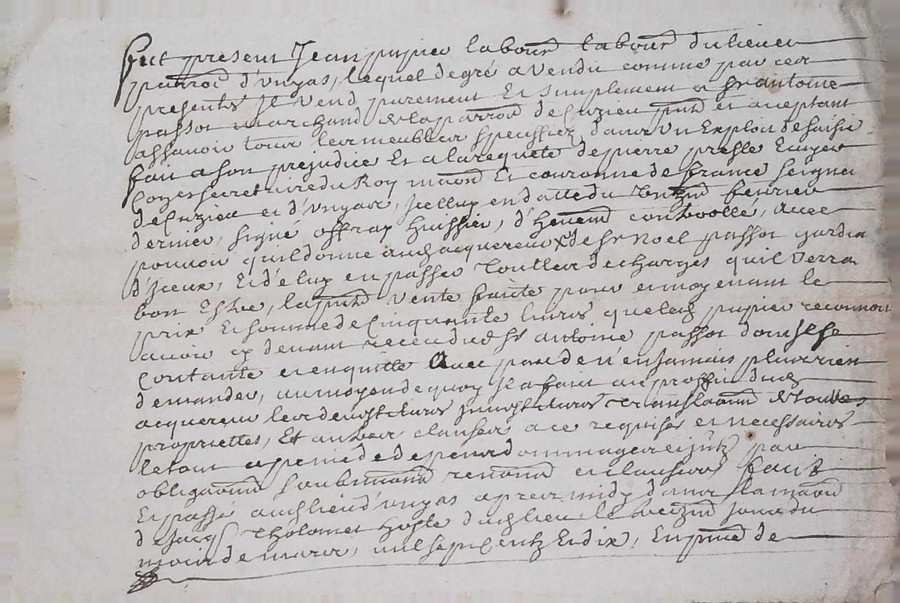 fut present Jean pupier labour labour du lieu et
parroi d'unyas, lequel de gré a vendu comme par ces
presentes Il vend purement Et simplement a sr antoine
passot marchand de la parroi de Cuzieu pnt et aceptant
assavoir tous les meubles speciffiez dans un Exploit de saisie
fait a son prejudice Et a la requete de pierre presle Ecuyer
Coner secretaire du Roy maison Et couronne de france seigneur
de Cuzieu et d'unyas, Icelluy en datte du fevrier
dernier, signé huissier, controollé, avec
pouvoir quil donne audt acquereur de sr Noel passot gardia
d'Iceux, Et de luy en passer touttes decharges quil verra
bon Estre, la pnte vente faite pour et moyenant le
prix Et somme de Cinquante livres que led pupier reconnoit
avoir cy devant receu dud sr antoine passot dont Il se
Contante et en quitte Avec pacte de n'en Jamais plus rien
demander, au moyen de quoy Il a fait au proffit dud
acquereur les devestitures Investitures translaons de toutes
proprietes, Et autres clauses a ce requises et necessaires
Le tout a peine de depens dommages Interets par
obligaons soubmissions renonaons et clauses fait
Et passé audt lieu d'unyas apres midy dans la maison
de Jacqs tholomet hoste dudt lieu le jour du
mois de mars, mil sept cents Et dix, En pnce de